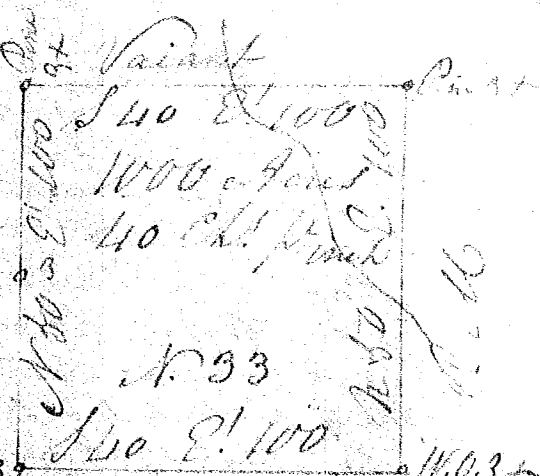 Pine 3x
Vacant
Pine 3x
S 40 E! 100
1000 Acres
40 Chs! p. inch
N 50 E! 100
N 50 E. 100
N. 33
S 40 E! 100
W.O. 3x